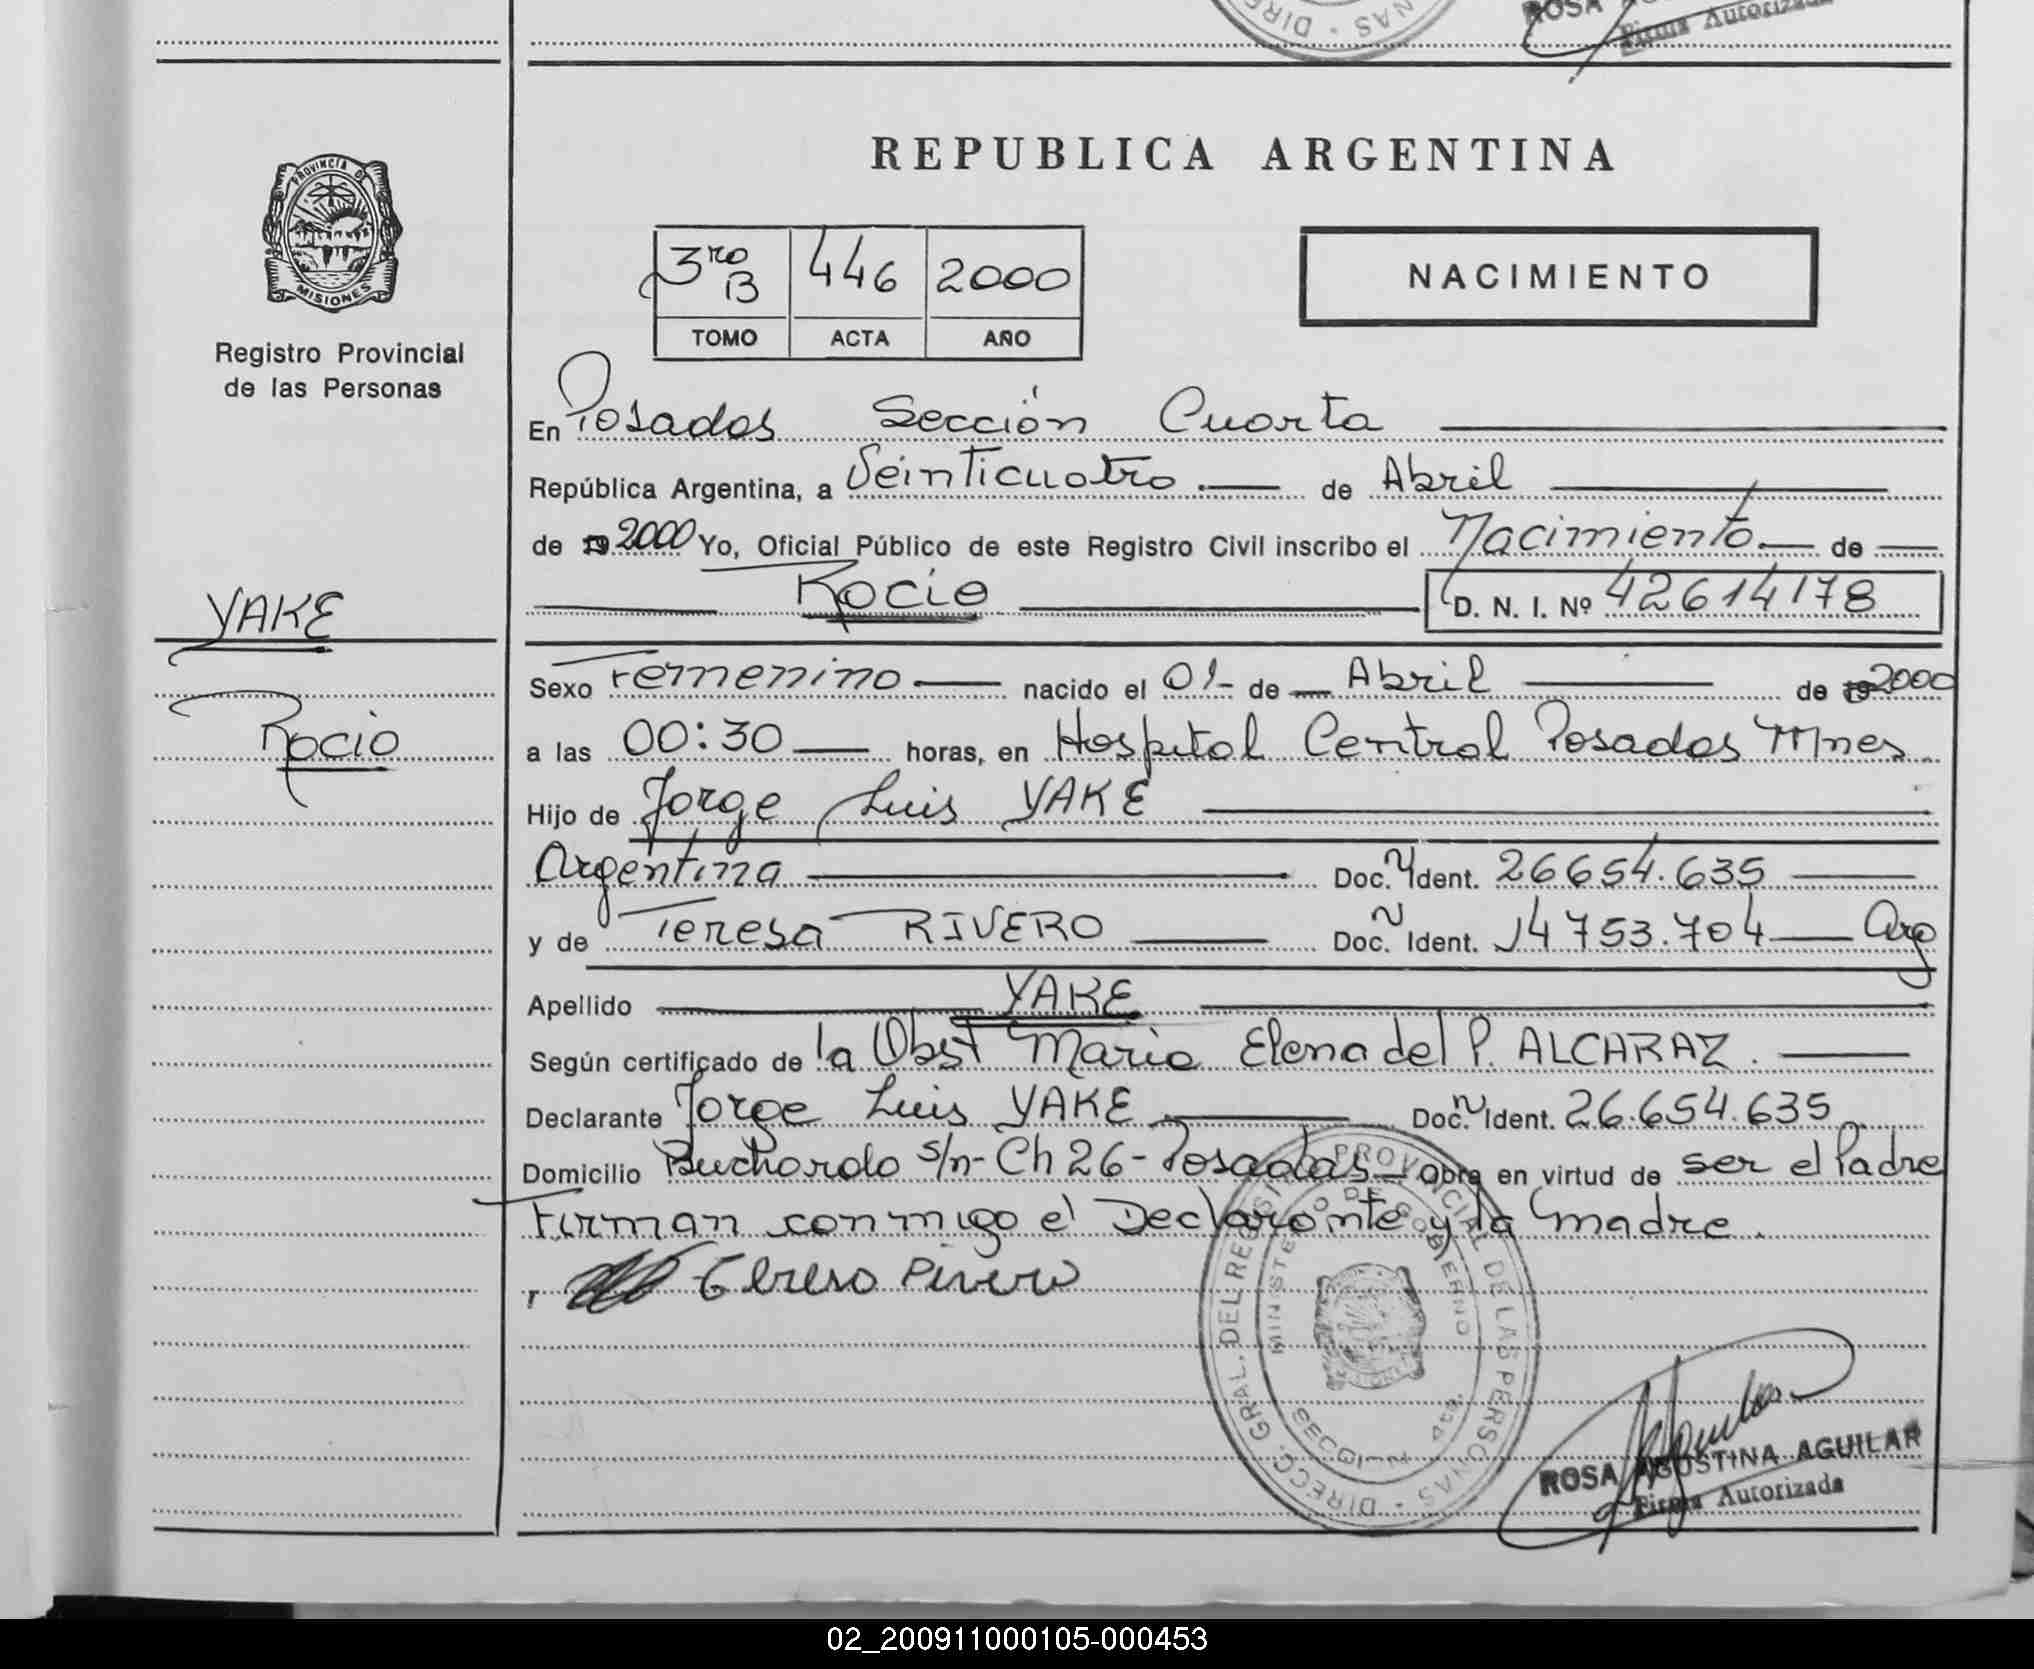 ROSA
Firma Autorizada
REPUBLICA ARGENTINA
PROVINCIA DE
MISIONES
Registro Provincial
de las Personas
3ro B 446 2000
TOMO ACTA AÑO
NACIMIENTO
En Posadas Sección Cuarta
República Argentina, a Veinticuatro de Abril
de 19 2000 Yo, Oficial Público de este Registro Civil inscribo el Nacimiento de
Rocio D. N. I. Nº 42614178
YAKE
Rocio
Sexo Femenino nacido el 01 de Abril de 19 2000
a las 00:30 horas, en Hospital Central Posadas Mnes
Hijo de Jorge Luis YAKE
Argentina Doc. N Ident. 26654.635
y de Teresa RIVERO Doc. N Ident. 14753.704 Arg
Apellido YAKE
Según certificado de la Obst Maria Elena del P. ALCARAZ.
Declarante Jorge Luis YAKE Doc. N Ident. 26.654.635
Domicilio Buchardo s/n - Ch 26 - Posadas Obra en virtud de ser el Padre
Firman conmigo el Declarante y la madre.
Teresa Rivero
DIRECC. GRAL. DEL REGISTRO PROVINCIAL DE LAS PERSONAS
MINISTERIO DE GOBIERNO
SECCION 4ta.
ROSA AGUSTINA AGUILAR
Firma Autorizada
02_200911000105-000453